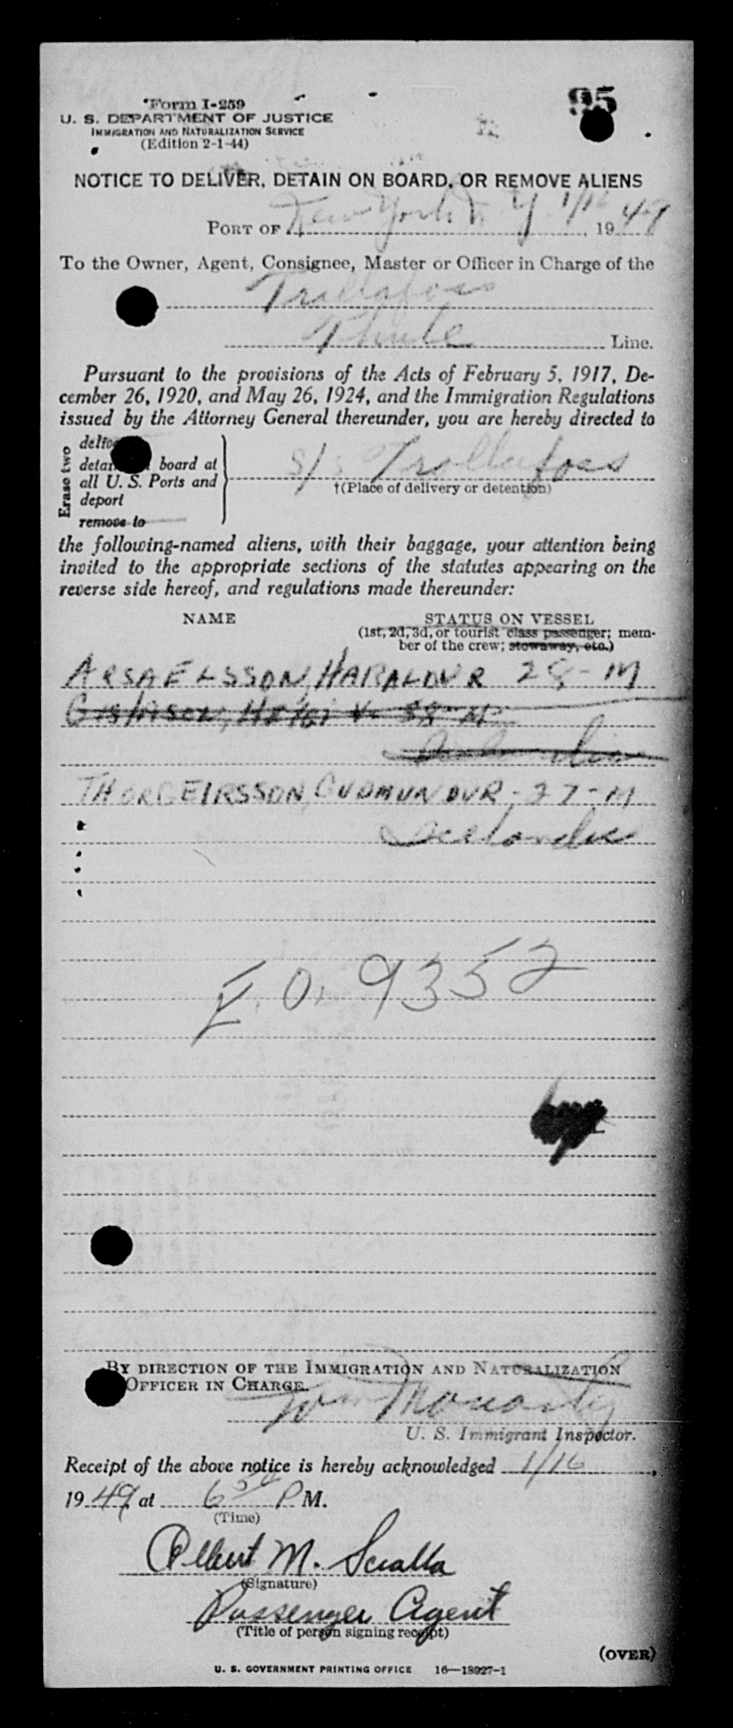 Form I-259
95
U. S. DEPARTMENT OF JUSTICE
IMMIGRATION AND NATURALIZATION SERVICE
(Edition 2-1-44)
NOTICE TO DELIVER, DETAIN ON BOARD, OR REMOVE ALIENS
PORT OF New York N Y 1/16, 1949
To the Owner, Agent, Consignee, Master or Officer in Charge of the
Trollafoss
Thule Line.
Pursuant to the provisions of the Acts of February 5, 1917, De-
cember 26, 1920, and May 26, 1924, and the Immigration Regulations
issued by the Attorney General thereunder, you are hereby directed to
Erase two
detain board at
all U. S. Ports and
deport
remove to
S/S Trollafoss
†(Place of delivery or detention)
the following-named aliens, with their baggage, your attention being
invited to the appropriate sections of the statutes appearing on the
reverse side hereof, and regulations made thereunder:
NAME STATUS ON VESSEL
(1st, 2d, 3d, or tourist class passenger; mem-
ber of the crew; stowaway, etc.)
ARSAELSSON, HARALDUR 28-M
GISLASON, HELGI V. 38-M
Icelandic
THORGEIRSSON, GUDMUNDUR-27-M
Icelandic
E.O. 9352
BY DIRECTION OF THE IMMIGRATION AND NATURALIZATION
OFFICER IN CHARGE.
Wm Moriarty
U. S. Immigrant Inspector.
Receipt of the above notice is hereby acknowledged 1/16,
1949 at 6 30 P M.
(Time)
Albert M. Scialla
(Signature)
Passenger Agent
(Title of person signing receipt)
(OVER)
U. S. GOVERNMENT PRINTING OFFICE 16—18927-1